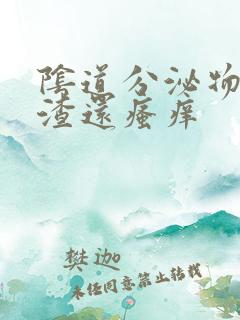 陰道分泌物
渣還瘙痒
樊迦
未经同意禁止转载